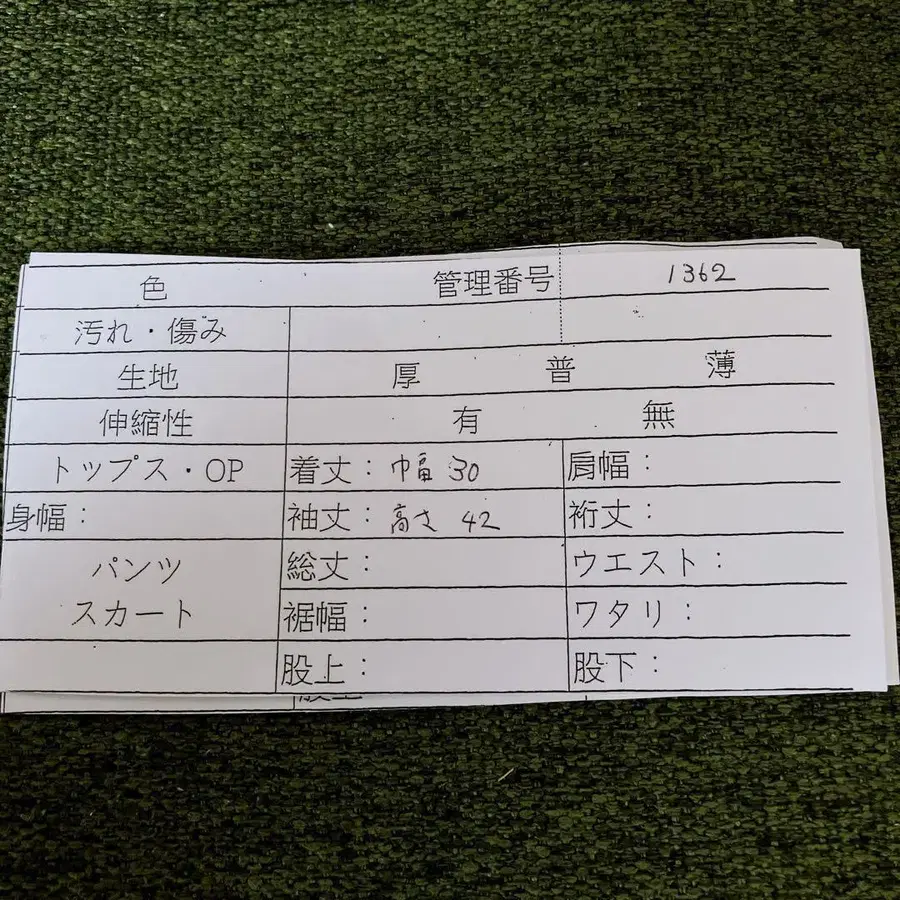 色 管理番号 1362
汚れ・傷み
生地 厚 普 薄
伸縮性 有 無
トップス・OP 着丈：巾幅 30 肩幅：
身幅： 袖丈：高さ 42 裄丈：
パンツ 総丈： ウエスト：
スカート 裾幅： ワタリ：
股上： 股下：